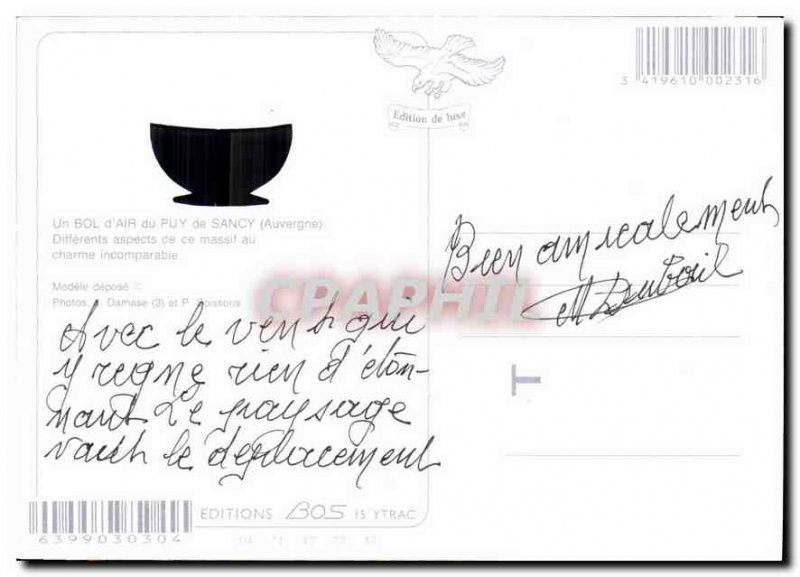 Edition de luxe
3 419610 002316
Un BOL d'AIR du PUY de SANCY (Auvergne).
Différents aspects de ce massif au
charme incomparable.
Modèle déposé
Photos. Damase (3) et P. Poissons
CPAPHIL
Avec le vent qui
y regne rien d'éton-
nant Le paysage
vaut le deplacement
Bien amicalement
EDITIONS BOS 15 YTRAC
6399030304